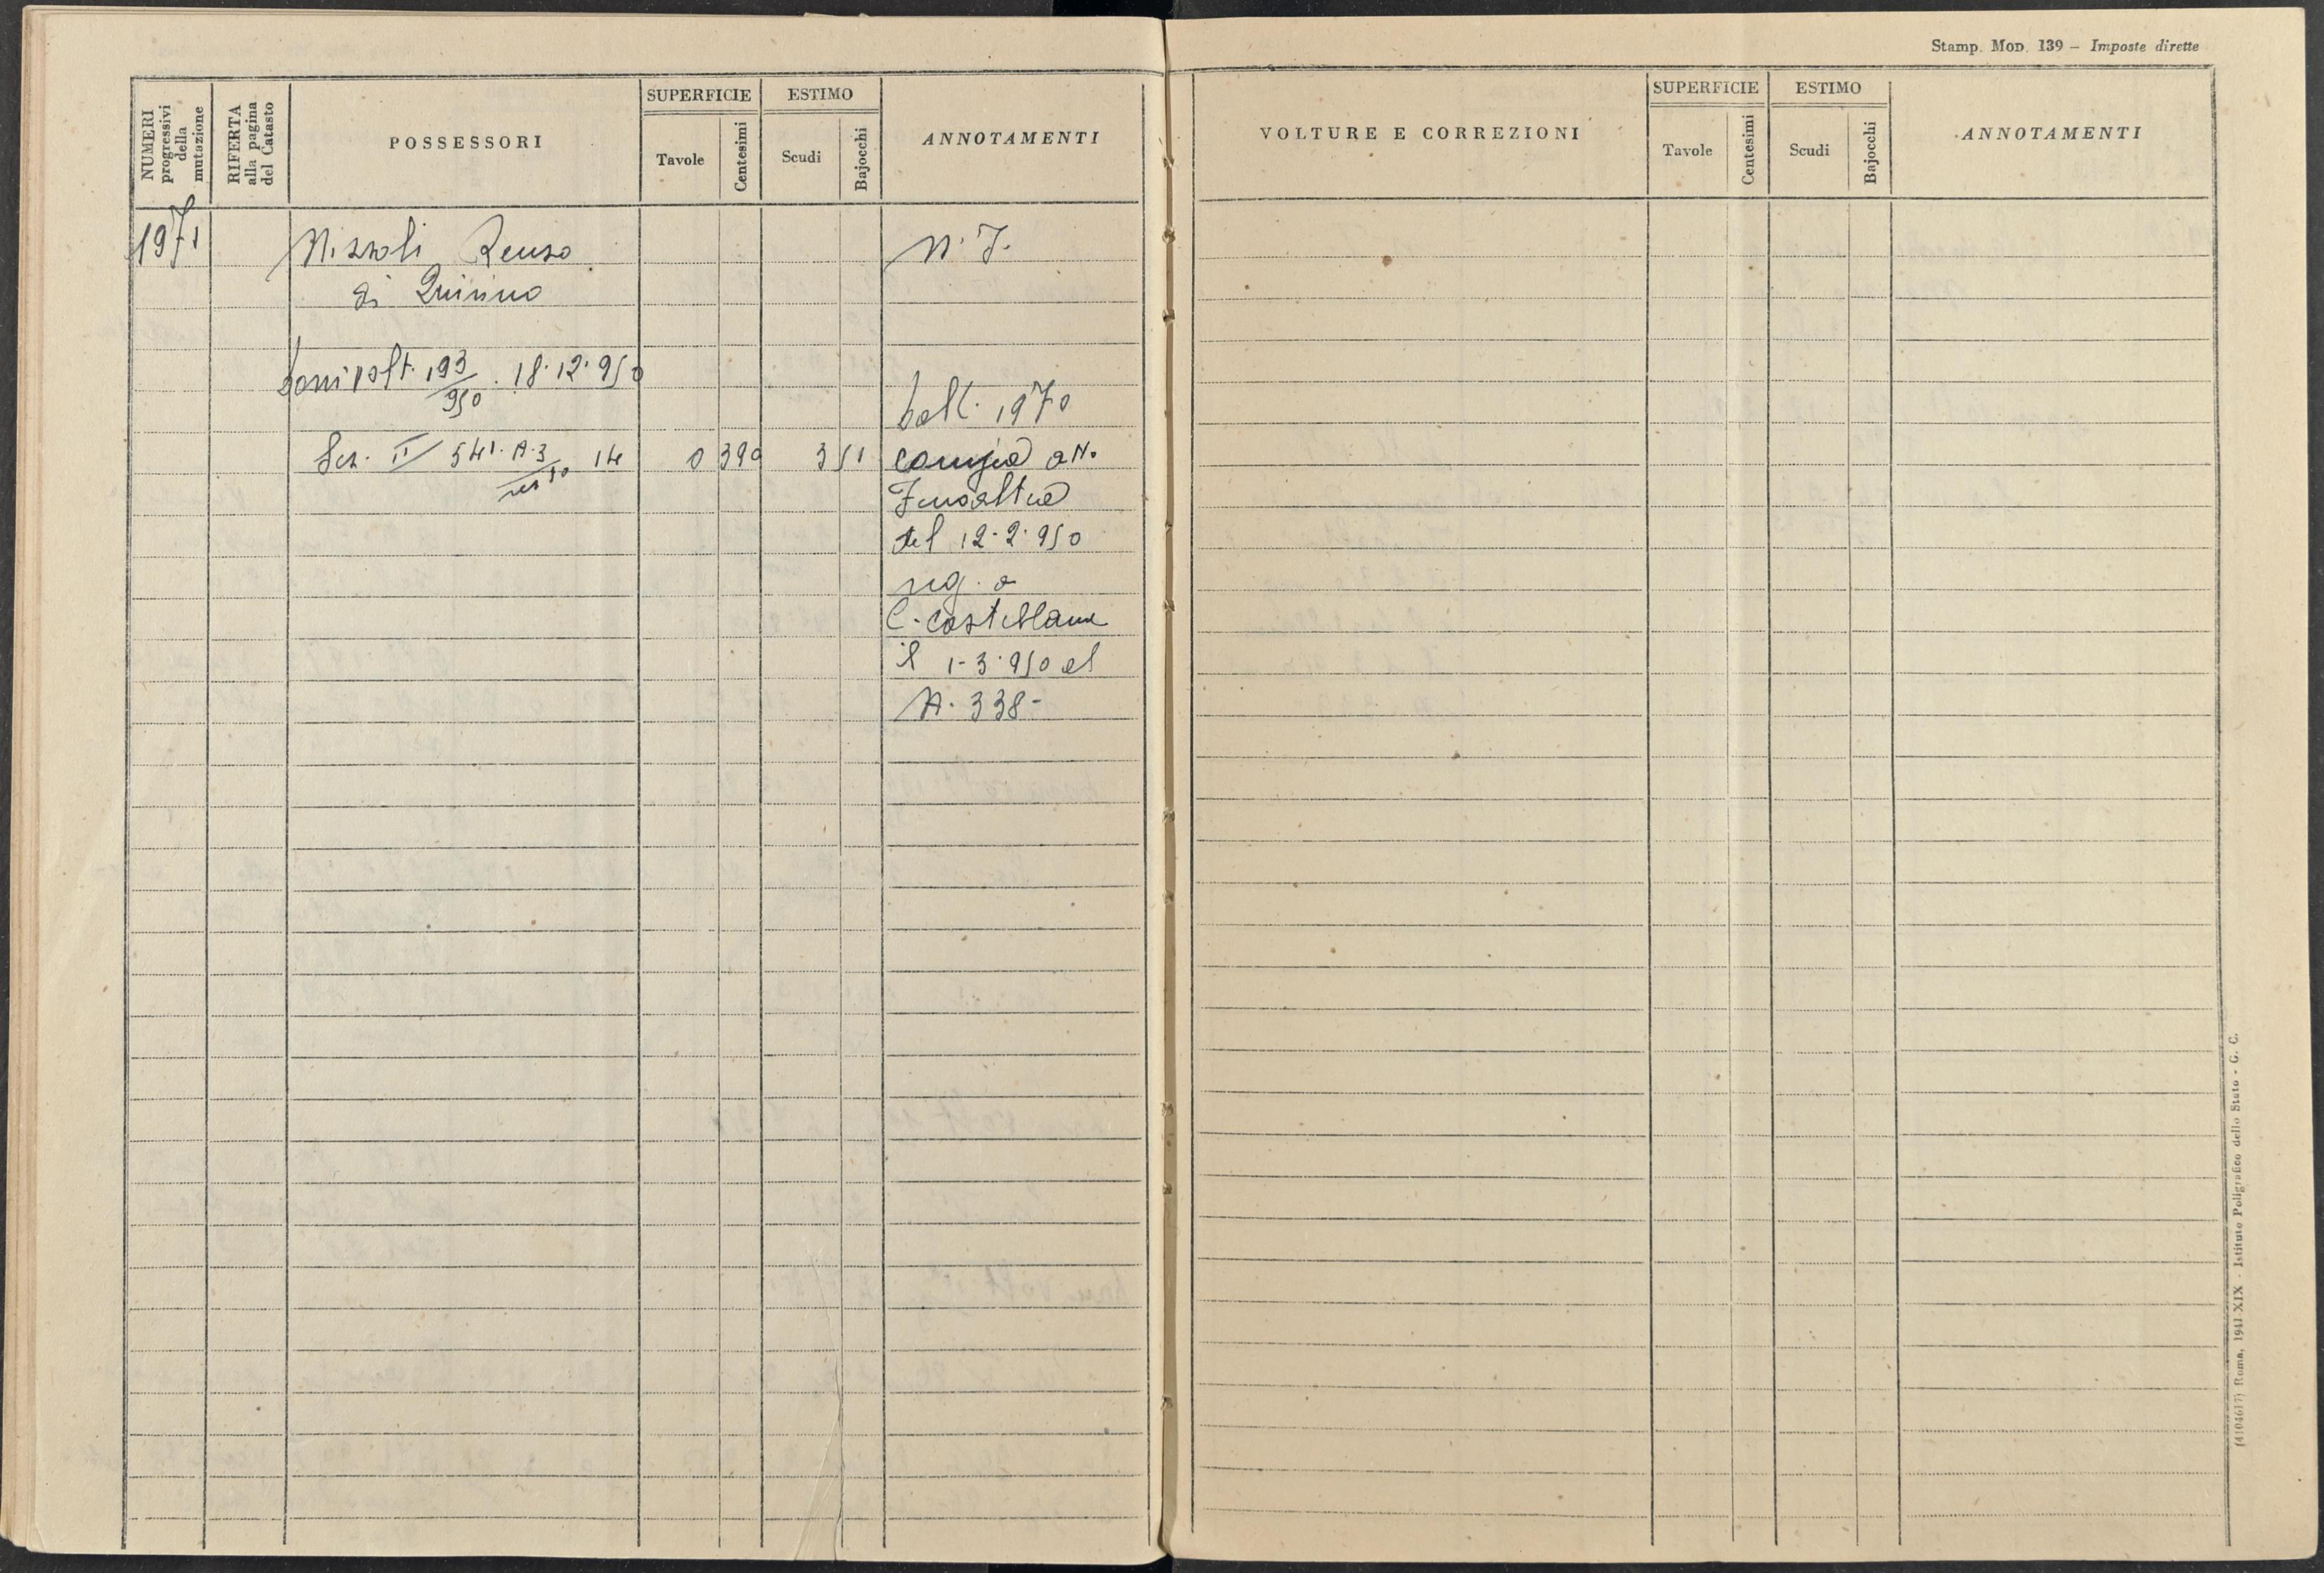 Stamp. Mod. 139 – Imposte dirette
NUMERI progressivi della mutazione
RIFERTA alla pagina del Catasto
POSSESSORI
SUPERFICIE
Tavole
Centesimi
ESTIMO
Scudi
Bajocchi
ANNOTAMENTI
VOLTURE E CORREZIONI
SUPERFICIE
Tavole
Centesimi
ESTIMO
Scudi
Bajocchi
ANNOTAMENTI
1971
Nizzoli Renzo
N. 7.
di Quirino
volt. 193/950. 18.12.950
1970
Sez. II 541. A.3 14 0 390 3 51
del 12.2.950
reg. a
C. Castellana
il 1-3-950 al
N. 338-
(4104617) Roma, 1941-XIX - Istituto Poligrafico dello Stato - G. C.